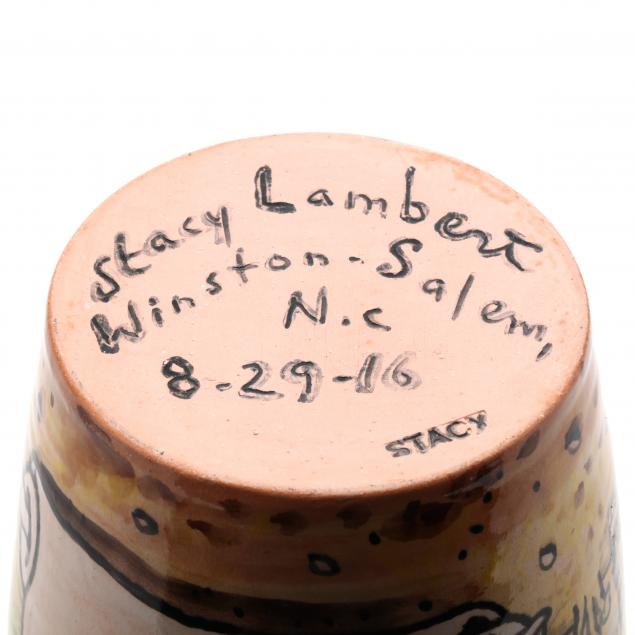 Stacy Lambert
Winston-Salem,
N.c
8-29-16
STACY